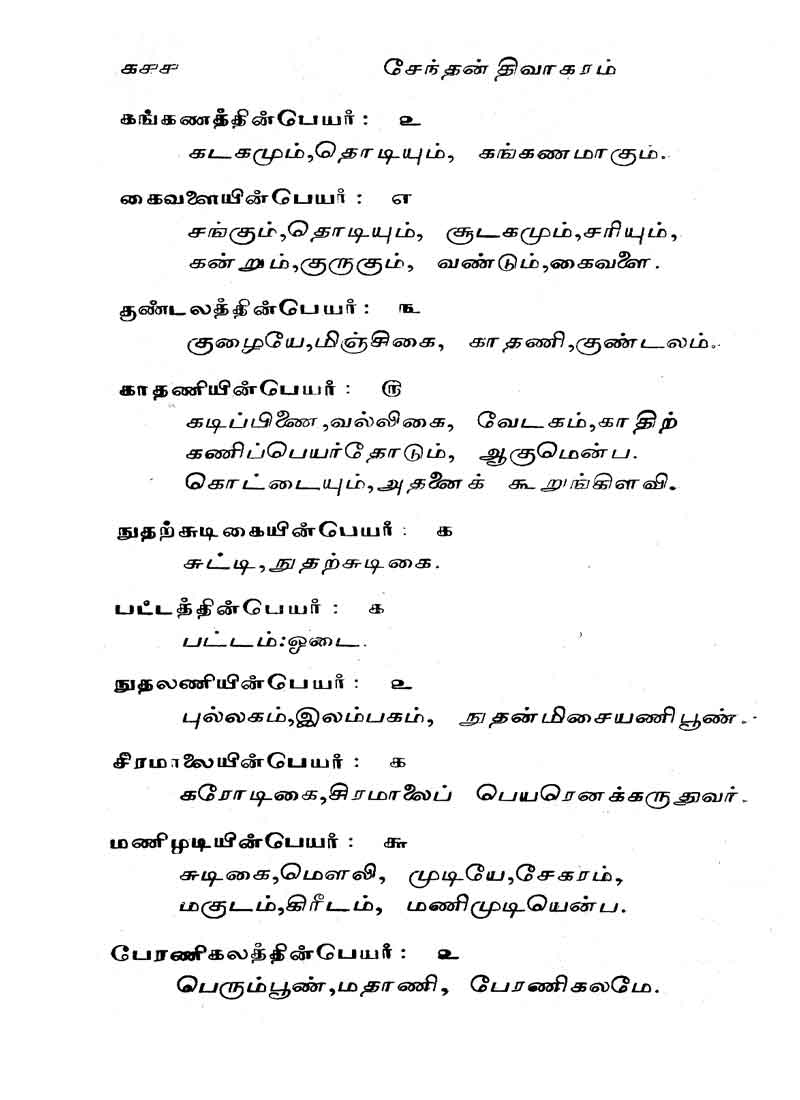 ௧௪௪ சேந்தன் திவாகரம்
கங்கணத்தின்பெயர் : ௨
கடகமும்,தொடியும், கங்கணமாகும்.
கைவளையின்பெயர் : ௭
சங்கும்,தொடியும், சூடகமும்,சரியும்,
கன்றும்,குருகும், வண்டும்,கைவளை.
குண்டலத்தின்பெயர் : ௩
குழையே,மிஞ்சிகை, காதணி,குண்டலம்.
காதணியின்பெயர் : ௫
கடிப்பிணை,வல்லிகை, வேடகம்,காதிற்
கணிப்பெயர்தோடும், ஆகுமென்ப.
கொட்டையும்,அதனைக் கூறுங்கிளவி.
நுதற்சுடிகையின்பெயர் : ௧
சுட்டி,நுதற்சுடிகை.
பட்டத்தின்பெயர் : ௧
பட்டம்:ஓடை.
நுதலணியின்பெயர் : ௨
புல்லகம்,இலம்பகம், நுதன்மிசையணிபூண்.
சிரமாலையின்பெயர் : ௧
கரோடிகை,சிரமாலைப் பெயரெனக்கருதுவர்.
மணிமுடியின்பெயர் : ௬
சுடிகை,மௌலி, முடியே,சேகரம்,
மகுடம்,கிரீடம், மணிமுடியென்ப.
பேரணிகலத்தின்பெயர் : ௨
பெரும்பூண்,மதாணி, பேரணிகலமே.